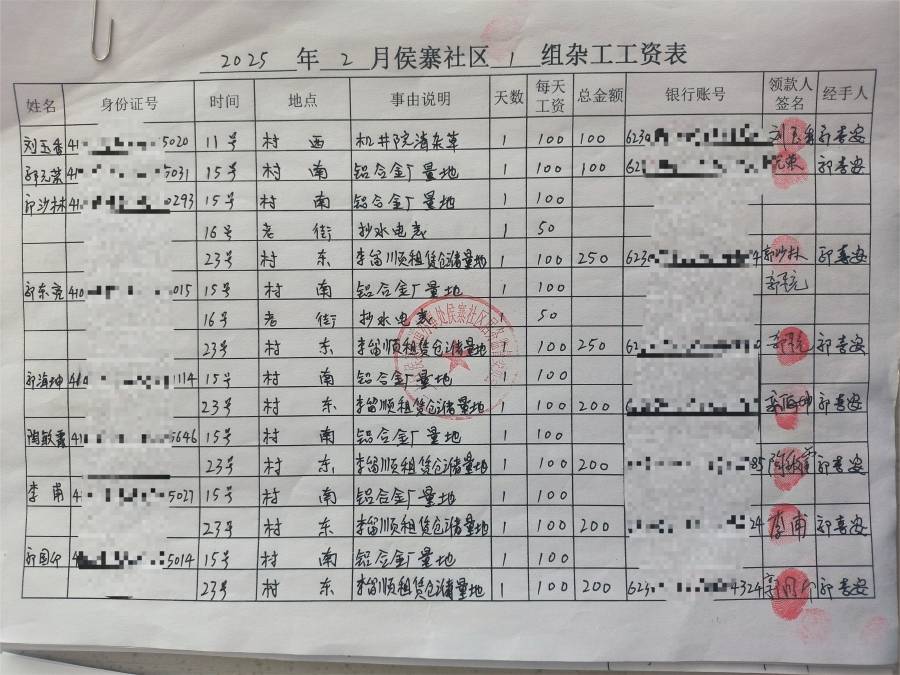 2025 年 2 月侯寨社区 1 组杂工工资表
姓名 身份证号 时间 地点 事由说明 天数 每天工资 总金额 银行账号 领款人签名 经手人
刘玉香 41 5020 11号 村 西 机井院清杂草 1 100 100 623 刘玉香 郭喜安
郭元荣 41 5031 15号 村 南 铝合金厂量地 1 100 100 62 元荣 郭喜安
郭沙林 41 0293 15号 村 南 铝合金厂量地 1 100
16号 老 街 抄水电表 1 50
23号 村 东 李留顺租赁仓储量地 1 100 250 623 4 郭沙林 郭喜安
郭东亮 410 015 15号 村 南 铝合金厂量地 1 100
16号 老 街 抄水电表 50
23号 村 东 李留顺租赁仓储量地 1 100 250 62 郭喜安
1114 15号 村 南 铝合金厂量地 1 100
23号 村 东 李留顺租赁仓储量地 1 100 200 郭喜安
陶敏霞 41 5646 15号 村 南 铝合金厂量地 1 100
23号 村 东 李留顺租赁仓储量地 1 100 200 85 郭喜安
李甫 4 5027 15号 村 南 铝合金厂量地 1 100
23号 村 东 李留顺租赁仓储量地 1 100 200 24 李甫 郭喜安
5014 15号 村 南 铝合金厂量地 1 100
23号 村 东 李留顺租赁仓储量地 1 100 200 623 4324 郭喜安